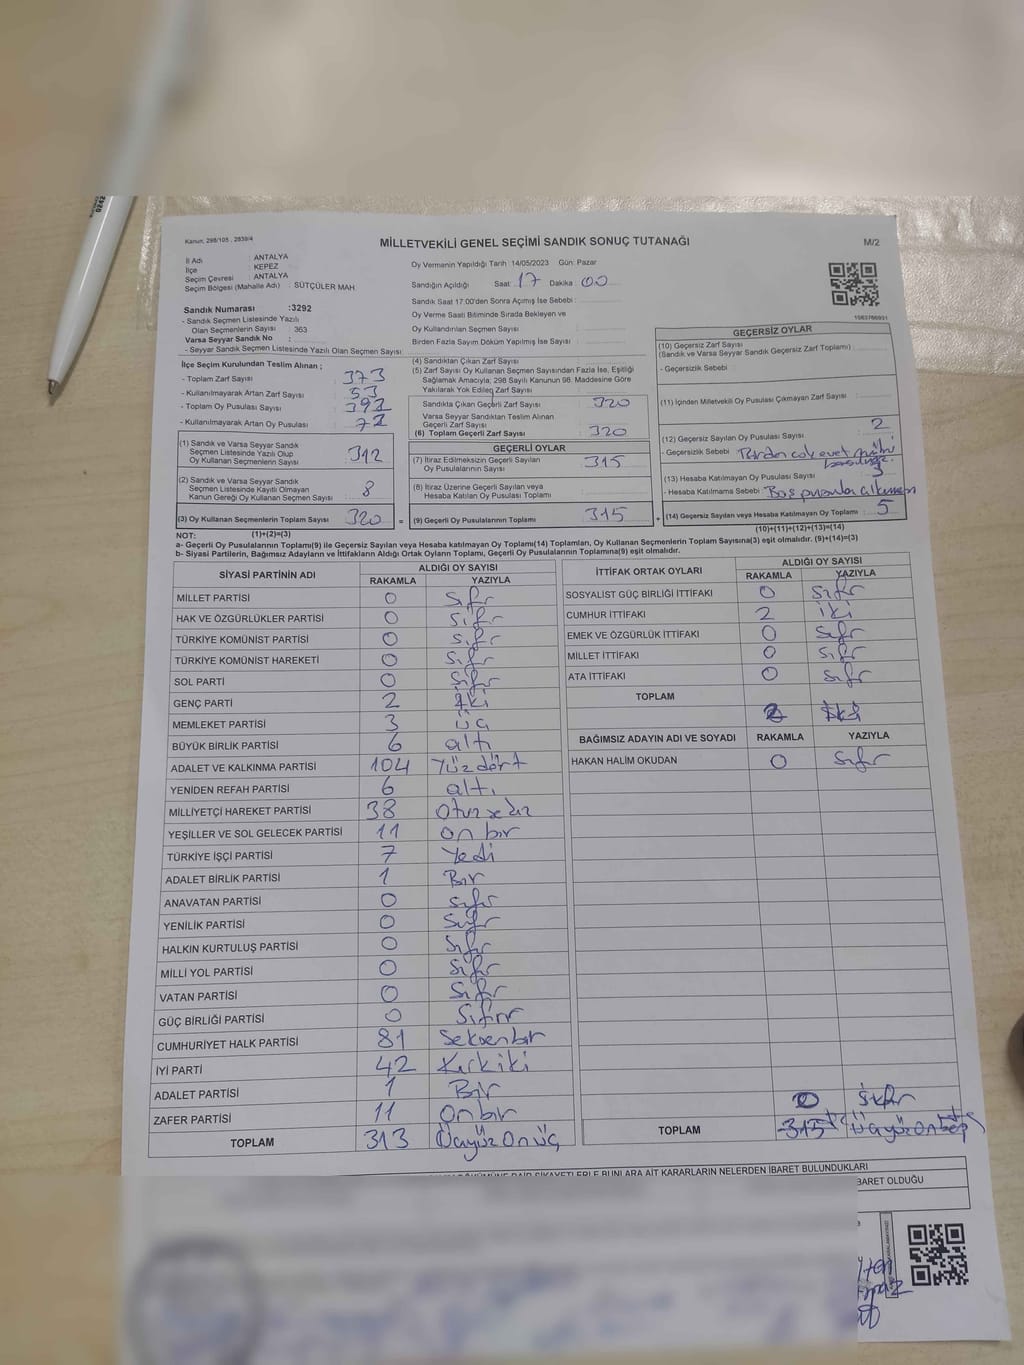 Kanun, 298/105 , 2839/4
MİLLETVEKİLİ GENEL SEÇİMİ SANDIK SONUÇ TUTANAĞI
M/2
İl Adı : ANTALYA
İlçe : KEPEZ
Seçim Çevresi : ANTALYA
Seçim Bölgesi (Mahalle Adı) : SÜTÇÜLER MAH.
Sandık Numarası :3292
- Sandık Seçmen Listesinde Yazılı
Olan Seçmenlerin Sayısı : 363
Varsa Seyyar Sandık No :
- Seyyar Sandık Seçmen Listesinde Yazılı Olan Seçmen Sayısı:
Oy Vermenin Yapıldığı Tarih :14/05/2023 Gün: Pazar
Sandığın Açıldığı Saat 17 Dakika 00
Sandık Saat 17.00'den Sonra Açımış İse Sebebi :
Oy Verme Saati Bitiminde Sırada Bekleyen ve
Oy Kullandırılan Seçmen Sayısı :
Birden Fazla Sayım Döküm Yapılmış İse Sayısı :
İlçe Seçim Kurulundan Teslim Alınan ;
- Toplam Zarf Sayısı : 373
- Kullanılmayarak Artan Zarf Sayısı : 53
- Toplam Oy Pusulası Sayısı : 392
- Kullanılmayarak Artan Oy Pusulası : 72
(1) Sandık ve Varsa Seyyar Sandık
Seçmen Listesinde Yazılı Olup
Oy Kullanan Seçmenlerin Sayısı : 312
(2) Sandık ve Varsa Seyyar Sandık
Seçmen Listesinde Kayıtlı Olmayan
Kanun Gereği Oy Kullanan Seçmen Sayısı : 8
(3) Oy Kullanan Seçmenlerin Toplam Sayısı : 320
(4) Sandıktan Çıkan Zarf Sayısı :
(5) Zarf Sayısı Oy Kullanan Seçmen Sayısından Fazla İse, Eşitliği
Sağlamak Amacıyla; 298 Sayılı Kanunun 98. Maddesine Göre
Yakılarak Yok Edilen Zarf Sayısı :
Sandıkta Çıkan Geçerli Zarf Sayısı : 320
Varsa Seyyar Sandıktan Teslim Alınan
Geçerli Zarf Sayısı :
(6) Toplam Geçerli Zarf Sayısı : 320
GEÇERLİ OYLAR
(7) İtiraz Edilmeksizin Geçerli Sayılan
Oy Pusulalarının Sayısı : 315
(8) İtiraz Üzerine Geçerli Sayılan veya
Hesaba Katılan Oy Pusulası Toplamı :
= (9) Geçerli Oy Pusulalarının Toplamı : 315
1563766931
GEÇERSİZ OYLAR
(10) Geçersiz Zarf Sayısı
(Sandık ve Varsa Seyyar Sandık Geçersiz Zarf Toplamı) :
- Geçersizlik Sebebi :
(11) İçinden Milletvekili Oy Pusulası Çıkmayan Zarf Sayısı :
(12) Geçersiz Sayılan Oy Pusulası Sayısı : 2
- Geçersizlik Sebebi : evet
(13) Hesaba Katılmayan Oy Pusulası Sayısı : 3
- Hesaba Katılmama Sebebi : Boş pusula
+ (14) Geçersiz Sayılan veya Hesaba Katılmayan Oy Toplamı : 5
NOT: (1)+(2)=(3)
(10)+(11)+(12)+(13)=(14)
a- Geçerli Oy Pusulalarının Toplamı(9) ile Geçersiz Sayılan veya Hesaba katılmayan Oy Toplamı(14) Toplamları, Oy Kullanan Seçmenlerin Toplam Sayısına(3) eşit olmalıdır. (9)+(14)=(3)
b- Siyasi Partilerin, Bağımsız Adayların ve İttifakların Aldığı Ortak Oyların Toplamı, Geçerli Oy Pusulalarının Toplamına(9) eşit olmalıdır.
SİYASİ PARTİNİN ADI ALDIĞI OY SAYISI
RAKAMLA YAZIYLA
MİLLET PARTİSİ 0 Sıfır
HAK VE ÖZGÜRLÜKLER PARTİSİ 0 Sıfır
TÜRKİYE KOMÜNİST PARTİSİ 0 Sıfır
TÜRKİYE KOMÜNİST HAREKETİ 0 Sıfır
SOL PARTİ 0 Sıfır
GENÇ PARTİ 2 İki
MEMLEKET PARTİSİ 3 üç
BÜYÜK BİRLİK PARTİSİ 6 altı
ADALET VE KALKINMA PARTİSİ 104 Yüzdört
YENİDEN REFAH PARTİSİ 6 altı
MİLLİYETÇİ HAREKET PARTİSİ 38 Otuzsekiz
YEŞİLLER VE SOL GELECEK PARTİSİ 11 On bir
TÜRKİYE İŞÇİ PARTİSİ 7 Yedi
ADALET BİRLİK PARTİSİ 1 Bir
ANAVATAN PARTİSİ 0 Sıfır
YENİLİK PARTİSİ 0 Sıfır
HALKIN KURTULUŞ PARTİSİ 0 Sıfır
MİLLİ YOL PARTİSİ 0 Sıfır
VATAN PARTİSİ 0 Sıfır
GÜÇ BİRLİĞİ PARTİSİ 0 Sıfır
CUMHURİYET HALK PARTİSİ 81 Seksenbir
İYİ PARTİ 42 Kırkiki
ADALET PARTİSİ 1 Bir
ZAFER PARTİSİ 11 Onbir
TOPLAM 313 Üçyüzonüç
İTTİFAK ORTAK OYLARI ALDIĞI OY SAYISI
RAKAMLA YAZIYLA
SOSYALİST GÜÇ BİRLİĞİ İTTİFAKI 0 Sıfır
CUMHUR İTTİFAKI 2 İki
EMEK VE ÖZGÜRLÜK İTTİFAKI 0 Sıfır
MİLLET İTTİFAKI 0 Sıfır
ATA İTTİFAKI 0 Sıfır
TOPLAM 2 İki
BAĞIMSIZ ADAYIN ADI VE SOYADI RAKAMLA YAZIYLA
HAKAN HALİM OKUDAN 0 Sıfır
0 Sıfır
TOPLAM 315 Üçyüzonbeş
BARET OLDUĞU